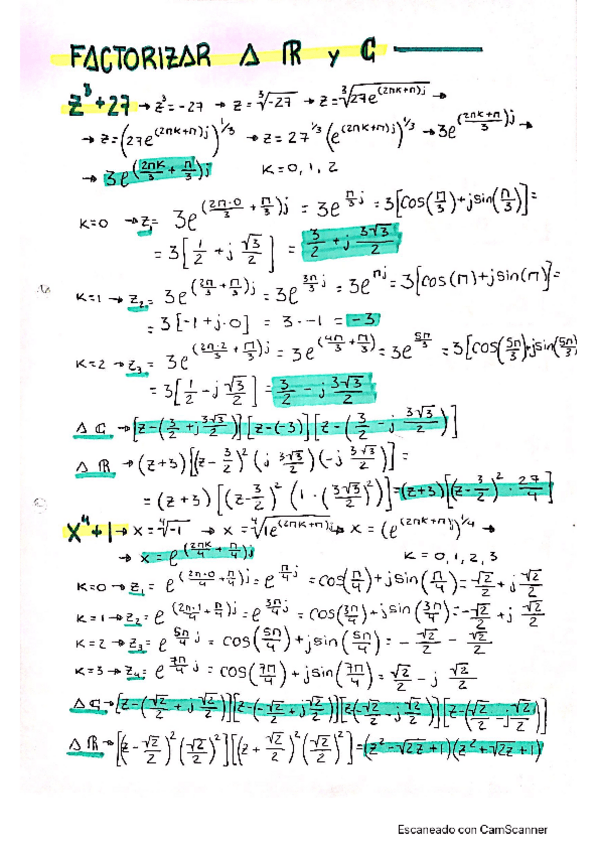 FACTORIZAR Δ ℝ y ℂ
z³+27 → z³=-27 → z=∛-27 → z=∛27e^(2πk+π)j →
→ z=(27e^(2πk+π)j)^1/3 → z=27^1/3(e^(2πk+π)j)^1/3 → 3e^((2πk+π)/3)j →
→ 3e^(2πk/3+π/3)j K=0,1,2
K=0 → z₁= 3e^(2π·0/3+π/3)j = 3e^(π/3)j = 3[cos(π/3)+jsin(π/3)]=
= 3[1/2+j√3/2] = 3/2+j 3√3/2
K=1 → z₂= 3e^(2π/3+π/3)j = 3e^(3π/3)j = 3e^πj = 3[cos(π)+jsin(π)]=
= 3[-1+j·0] = 3·-1 = -3
K=2 → z₃= 3e^(2π·2/3+π/3)j = 3e^(4π/3+π/3) = 3e^5π/3 = 3[cos(5π/3)+jsin(5π/3)
= 3[1/2-j√3/2] = 3/2-j 3√3/2
Δ ℂ → [z-(3/2+j 3√3/2)][z-(-3)][z-(3/2-j 3√3/2)]
Δ ℝ → (z+3)[(z-3/2)²(j 3√3/2)(-j 3√3/2)]=
= (z+3)[(z-3/2)²(1·(3√3/2)²)]=(z+3)[(z-3/2)²·27/4]
x⁴+1 → x=∜-1 → x=∜1e^(2πk+π)j → x=(e^(2πk+π)j)^1/4 →
→ x=e^(2πk/4+π/4)j K=0,1,2,3
K=0 → z₁= e^(2π·0/4+π/4)j = e^(π/4)j = cos(π/4)+jsin(π/4)=√2/2+j√2/2
K=1 → z₂= e^(2π·1/4+π/4)j = e^(3π/4)j = cos(3π/4)+jsin(3π/4)=-√2/2+j√2/2
K=2 → z₃= e^(5π/4)j = cos(5π/4)+jsin(5π/4)= -√2/2-√2/2
K=3 → z₄= e^(7π/4)j = cos(7π/4)+jsin(7π/4)=√2/2-j√2/2
Δ ℂ → [z-(√2/2+j√2/2)][z-(-√2/2+j√2/2)][z-(-√2/2-j√2/2)][z-(√2/2-j√2/2)]
Δ ℝ → [(z-√2/2)²(√2/2)²][(z+√2/2)²(√2/2)²]=(z²-√2z+1)(z²+√2z+1)
Escaneado con CamScanner